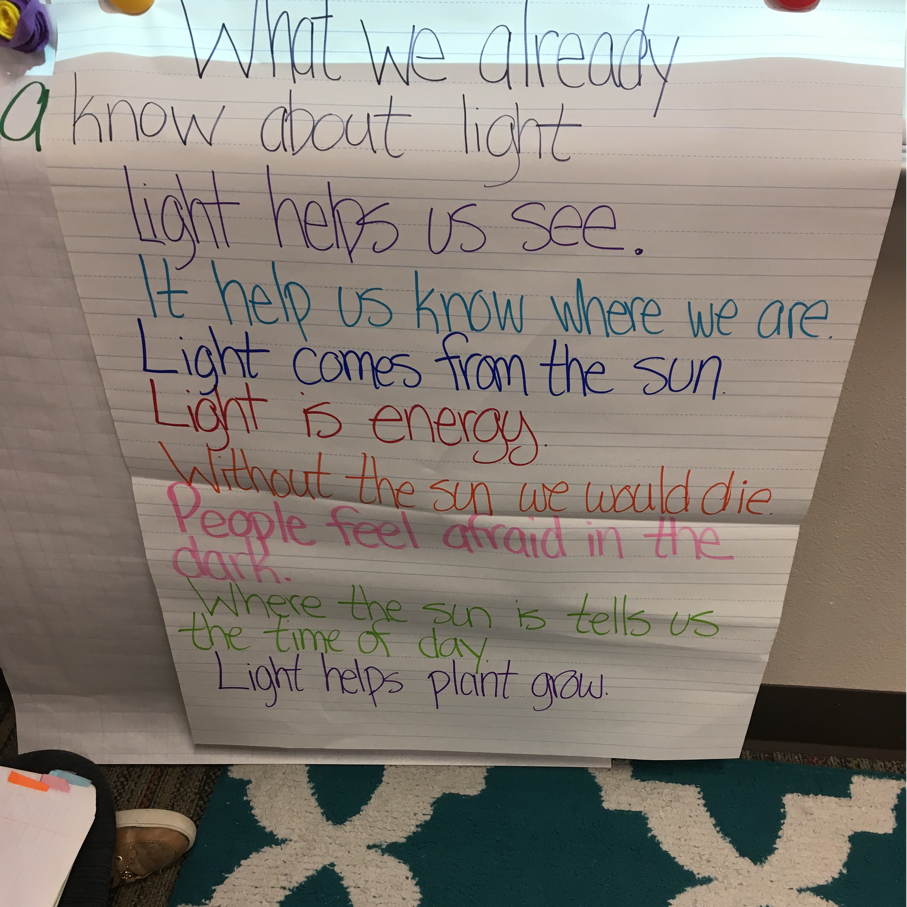 What we already
a
know about light
Light helps us see.
It help us know where we are.
Light comes from the sun.
Light is energy.
Without the sun we would die.
People feel afraid in the
dark.
Where the sun is tells us
the time of day
Light helps plant grow.